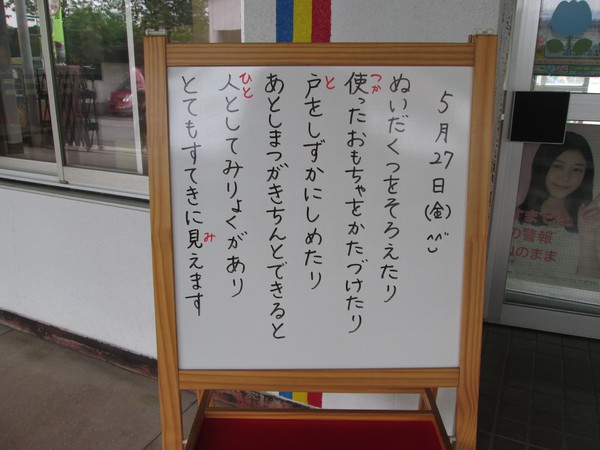 5月27日(金)^^
ぬいだくつをそろえたり
使ったおもちゃをかたづけたり
つか
戸をしずかにしめたり
と
あとしまつがきちんとできると
人としてみりょくがあり
ひと
とてもすてきに見えます
み
の警報
のまま